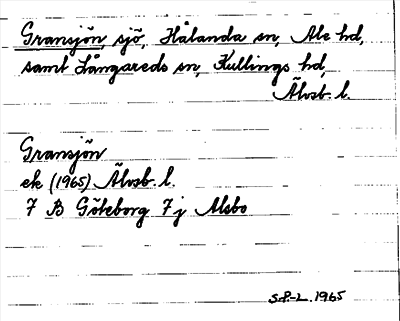 Gransjön, sjö, Hålanda sn, Ale hd,
samt Långareds sn, Kullings hd,
Älvsb. l.
Gransjön
ek (1965) Älvsb. l.
7 B Göteborg 7 j Alsbo
S.P-L. 1965